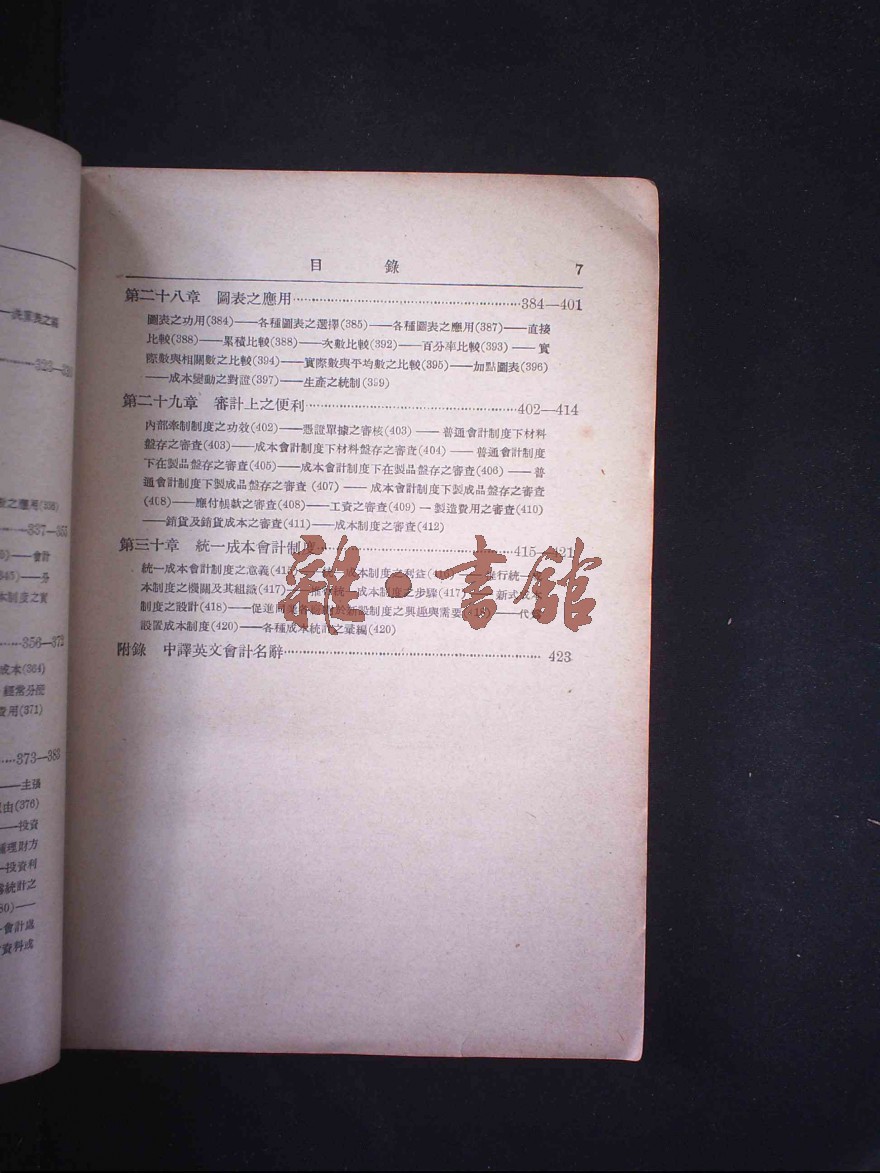 目 錄 7
第二十八章 圖表之應用……384—401
圖表之功用(384)——各種圖表之選擇(385)——各種圖表之應用(387)——直接
比較(388)——累積比較(388)——次數比較(392)——百分率比較(393)——實
際數與相關數之比較(394)——實際數與平均數之比較(395)——加點圖表(396)
——成本變動之對證(397)——生產之統制(399)
第二十九章 審計上之便利……402—414
內部牽制制度之功效(402)——憑證單據之審核(403)——普通會計制度下材料
盤存之審查(403)——成本會計制度下材料盤存之審查(404)——普通會計制度
下在製品盤存之審查(405)——成本會計制度下在製品盤存之審查(406)——普
通會計制度下製成品盤存之審查(407)——成本會計制度下製成品盤存之審查
(408)——應付帳款之審查(408)——工資之審查(409)—製造費用之審查(410)
——銷貨及銷貨成本之審查(411)——成本制度之審查(412)
第三十章 統一成本會計制度……415—421
統一成本會計制度之意義(41 ——統一成本制度之利益(41 行統一
本制度之機關及其組識(417)—— 統一成本制度之步驟(417) 新式成本
制度之設計(418)——促進同業各 於新設制度之興趣與需要 ——代
設置成本制度(420)——各種成本統計之彙編(420)
附錄 中譯英文會計名辭…… 423
雜·書館
337—355
356—372
成本(364)
經常分配
費用(371)
373—383
——主張
由(376)
——投資
理財方
投資利
統計之
80)——
會計處
資料成